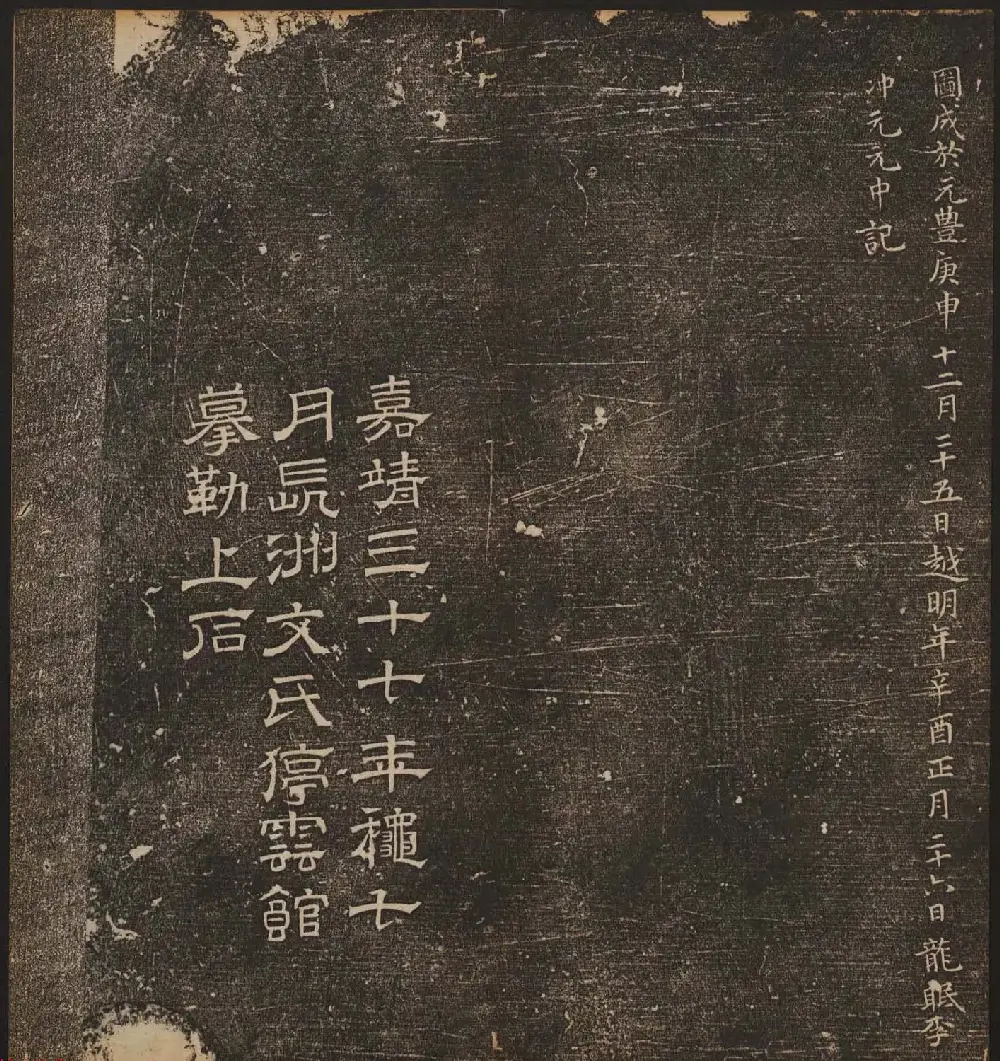 圖成於元豊庚申十二月二十五日越明年辛酉正月二十六日龍眠李
冲元元中記
嘉靖三十七年龝七
月長洲文氏停雲館
摹勒上石